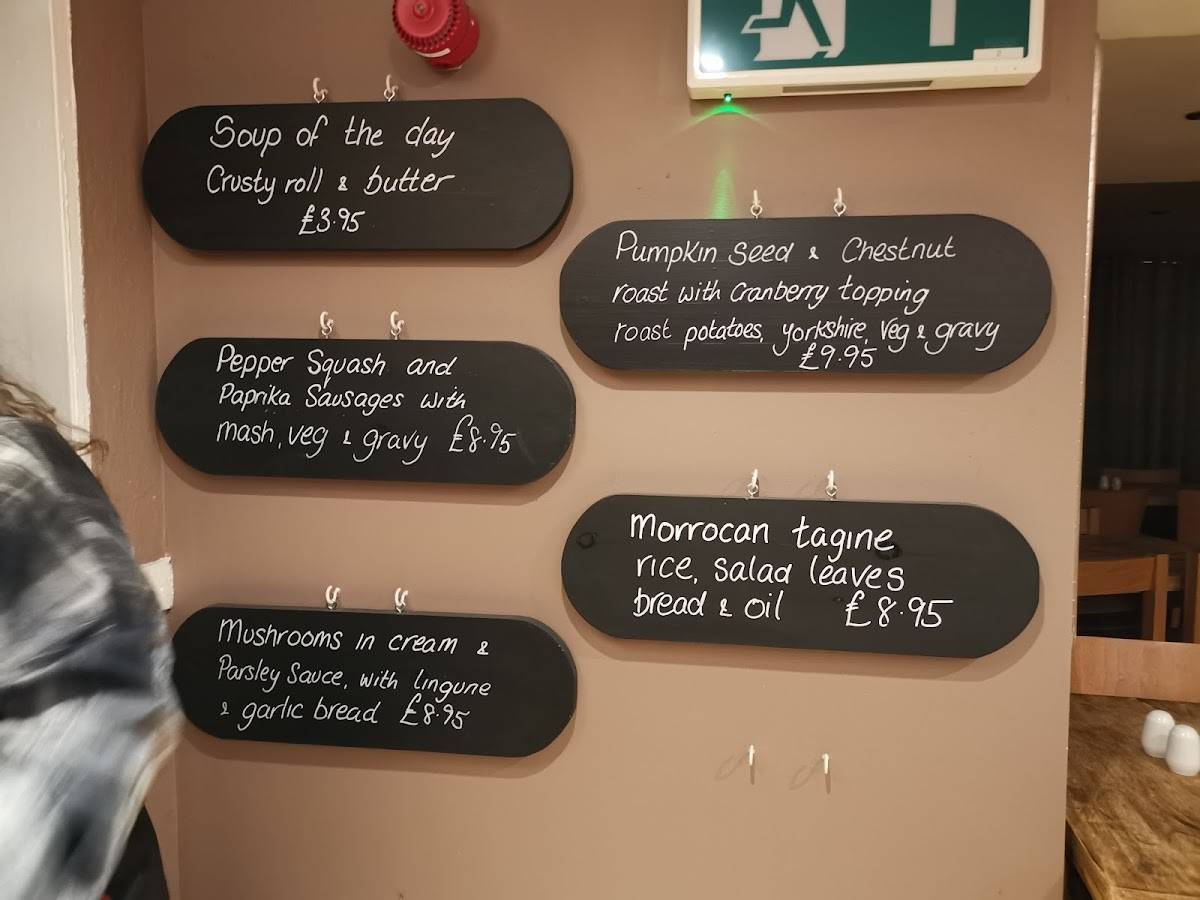 Soup of the day
Crusty roll & butter
£3.95
Pumpkin Seed & Chestnut
roast with Cranberry topping
roast potatoes, yorkshire, veg & gravy
£9.95
Pepper Squash and
Paprika Sausages with
mash, veg & gravy £8.95
Morrocan tagine
rice, salad leaves
bread & oil £8.95
Mushrooms in cream &
Parsley Sauce, with lingune
& garlic bread £8.95